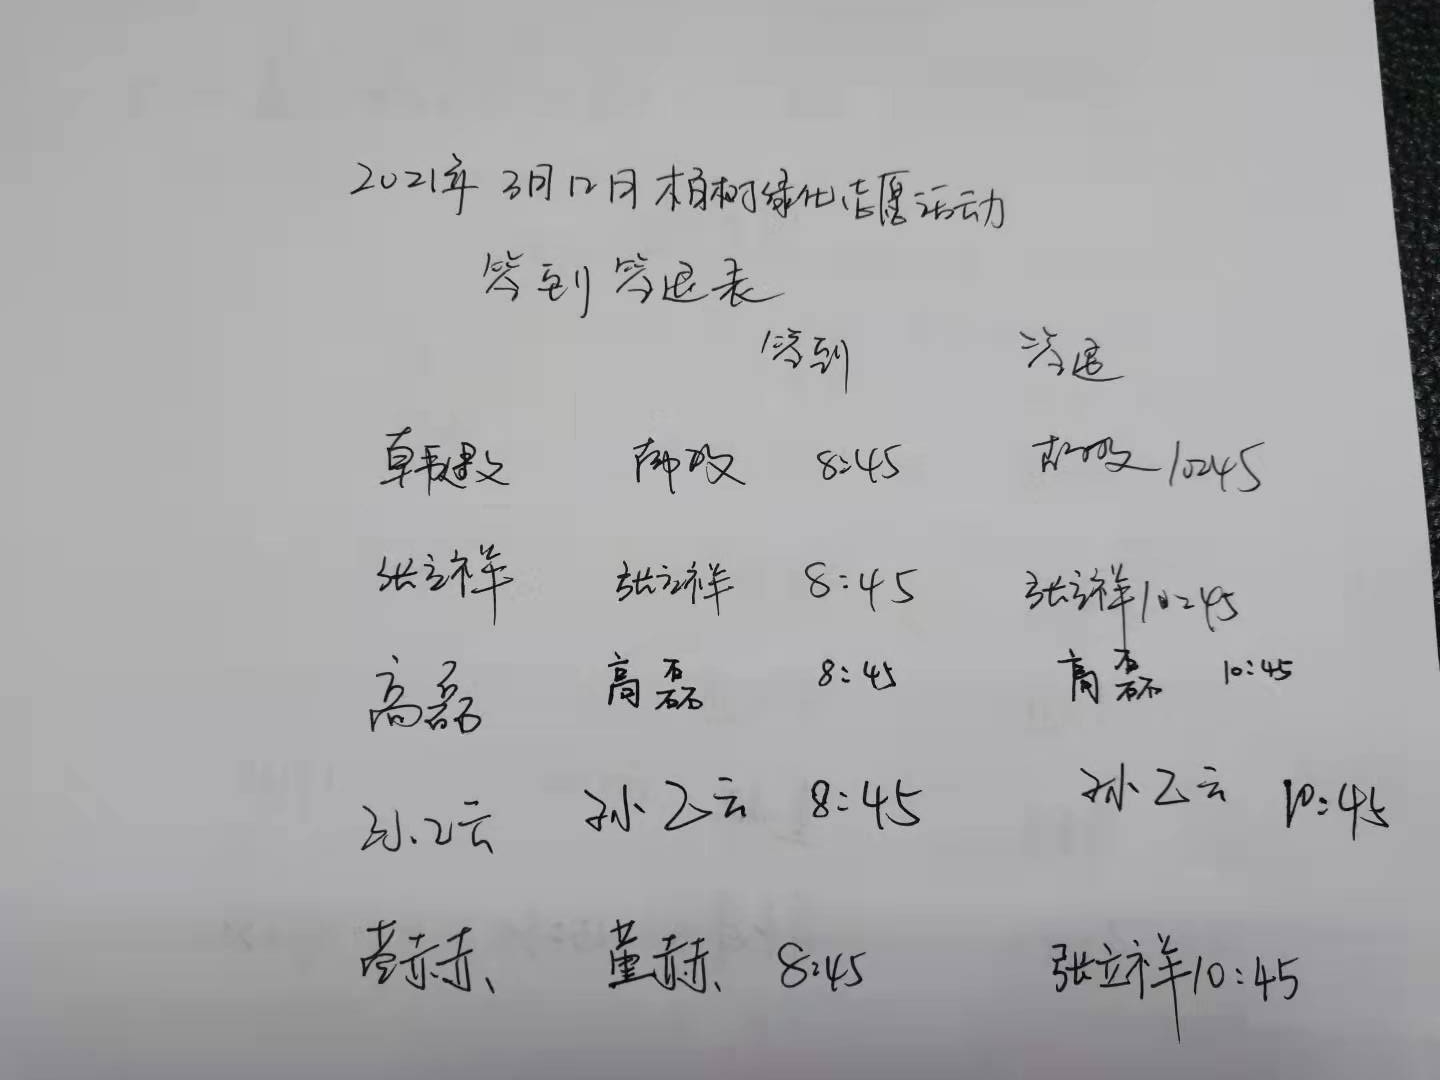 2021年3月12日植树绿化志愿活动
签到签退表
签到 签退
韩建文 8:45 10:45
张立祥 张立祥 8:45 张立祥 10:45
高磊 高磊 8:45 高磊 10:45
孙乙云 孙乙云 8:45 孙乙云 10:45
董赫 董赫 8:45 张立祥 10:45